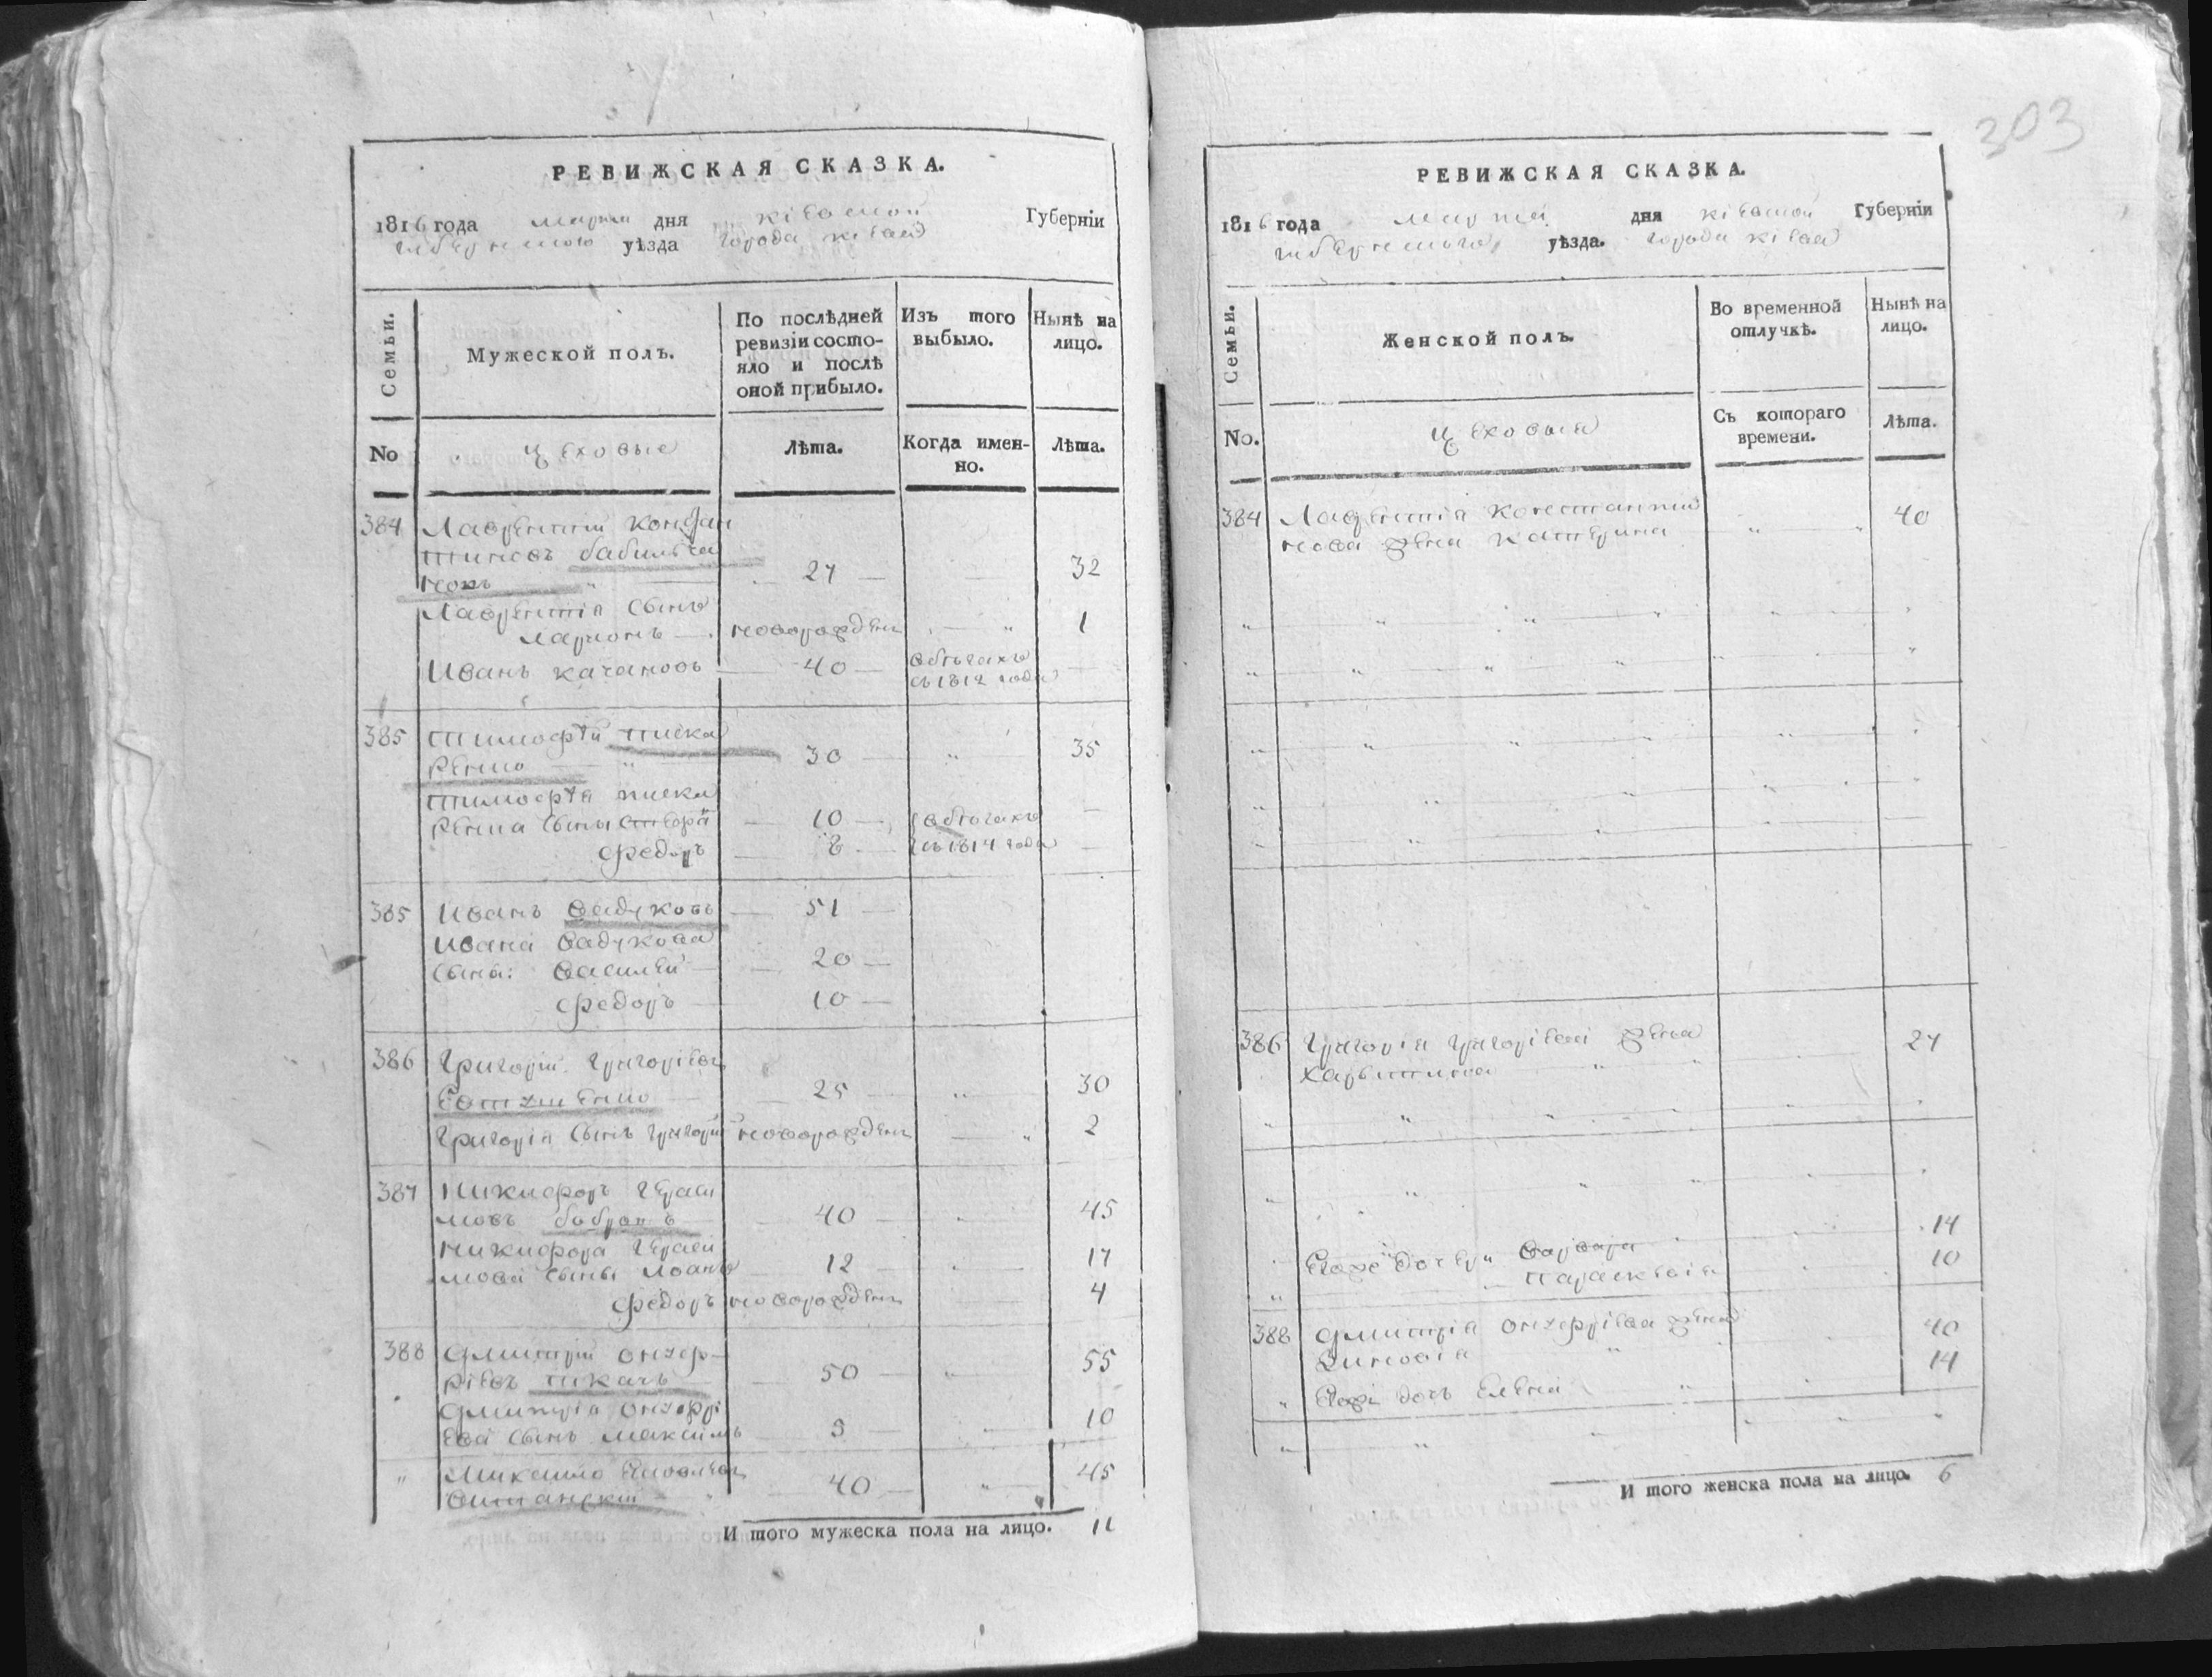 303
РЕВИЖСКАЯ СКАЗКА.
1816 года марта дня кіевской Губерніи
губернского уѣзда города кіева
Семьи.
Мужеской полъ.
По послѣдней ревизіи состо-
яло и послѣ
оной прибыло.
Изъ того
выбыло.
Нынѣ на
лицо.
No
цеховые
Лѣта.
Когда имен-
но.
Лѣта.
384 Лаврентий констан
тиновъ
27 32
Лаврентія сынъ
Ларионъ новорожден 1
Иванъ качановъ 40 въ бѣгахъ
съ 1812 года
385 Тимофѣй писка
ренко 30 35
Тимофѣя писка
ренка сыны 10 въ бѣгахъ
федоръ 8 съ 1814 года
385 Иванъ 51
Ивана
сына: василей 20
федоръ 10
386 Григорій Григоріевъ
25 30
Григорія сынъ григорій новорожден 2
387 Никифоръ Гераси
мовъ 40 45
Никифора Гераси
мова сыны 12 17
федоръ новорожден 4
388 Дмитрій онуф-
ріевъ ткачъ 50 55
Дмитрія онуфрі
ева сынъ максимъ 5 10
" Михайло
40 45
И того мужеска пола на лицо. 11
РЕВИЖСКАЯ СКАЗКА.
1816 года марта дня кіевской Губерніи
губернского уѣзда. города кіева
Семьи.
Женской полъ.
Во временной
отлучкѣ.
Нынѣ на
лицо.
No.
цеховыя
Съ котораго
времени.
Лѣта.
384 Лаврентія константи
нова жена катерина 40
386 Григорія григоріева жена 27
Харытина
Егоже дочери варвара 14
параскевія 10
388 Дмитрія онуфріева жена 40
Зиновія
Егожъ дочь Елена 14
И того женска пола на лицо. 6